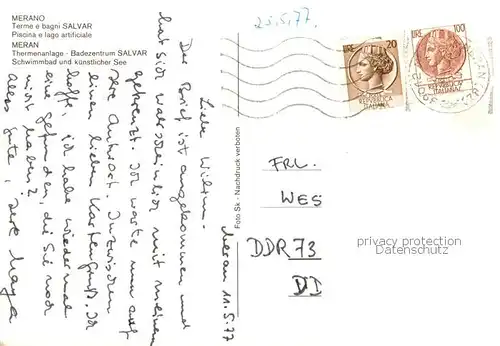 MERANO
Terme e bagni SALVAR
Piscina e lago artificiale
MERAN
Thermenanlage - Badezentrum SALVAR
Schwimmbad und künstlicher See
23.5.77
LIRE 20
REPUBBLICA
ITALIANA
LIRE 100
REPUBBLICA
ITALIANA
Foto Sk - Nachdruck verboten
Meran 11.5.77
Liebe
Der Brief ist angekommen und
hat sich wahrscheinlich mit meinem
gekreuzt. Ich warte nun auf
Ihre Antwort. Inzwischen
einen lieben Kartengruß. Ich
hoffe, ich habe wieder mal
eine gefunden, die Sie noch
nicht haben?
Alles Gute, Ihre Maya
FRL.
WES
DDR 73
DD
privacy protection
Datenschutz